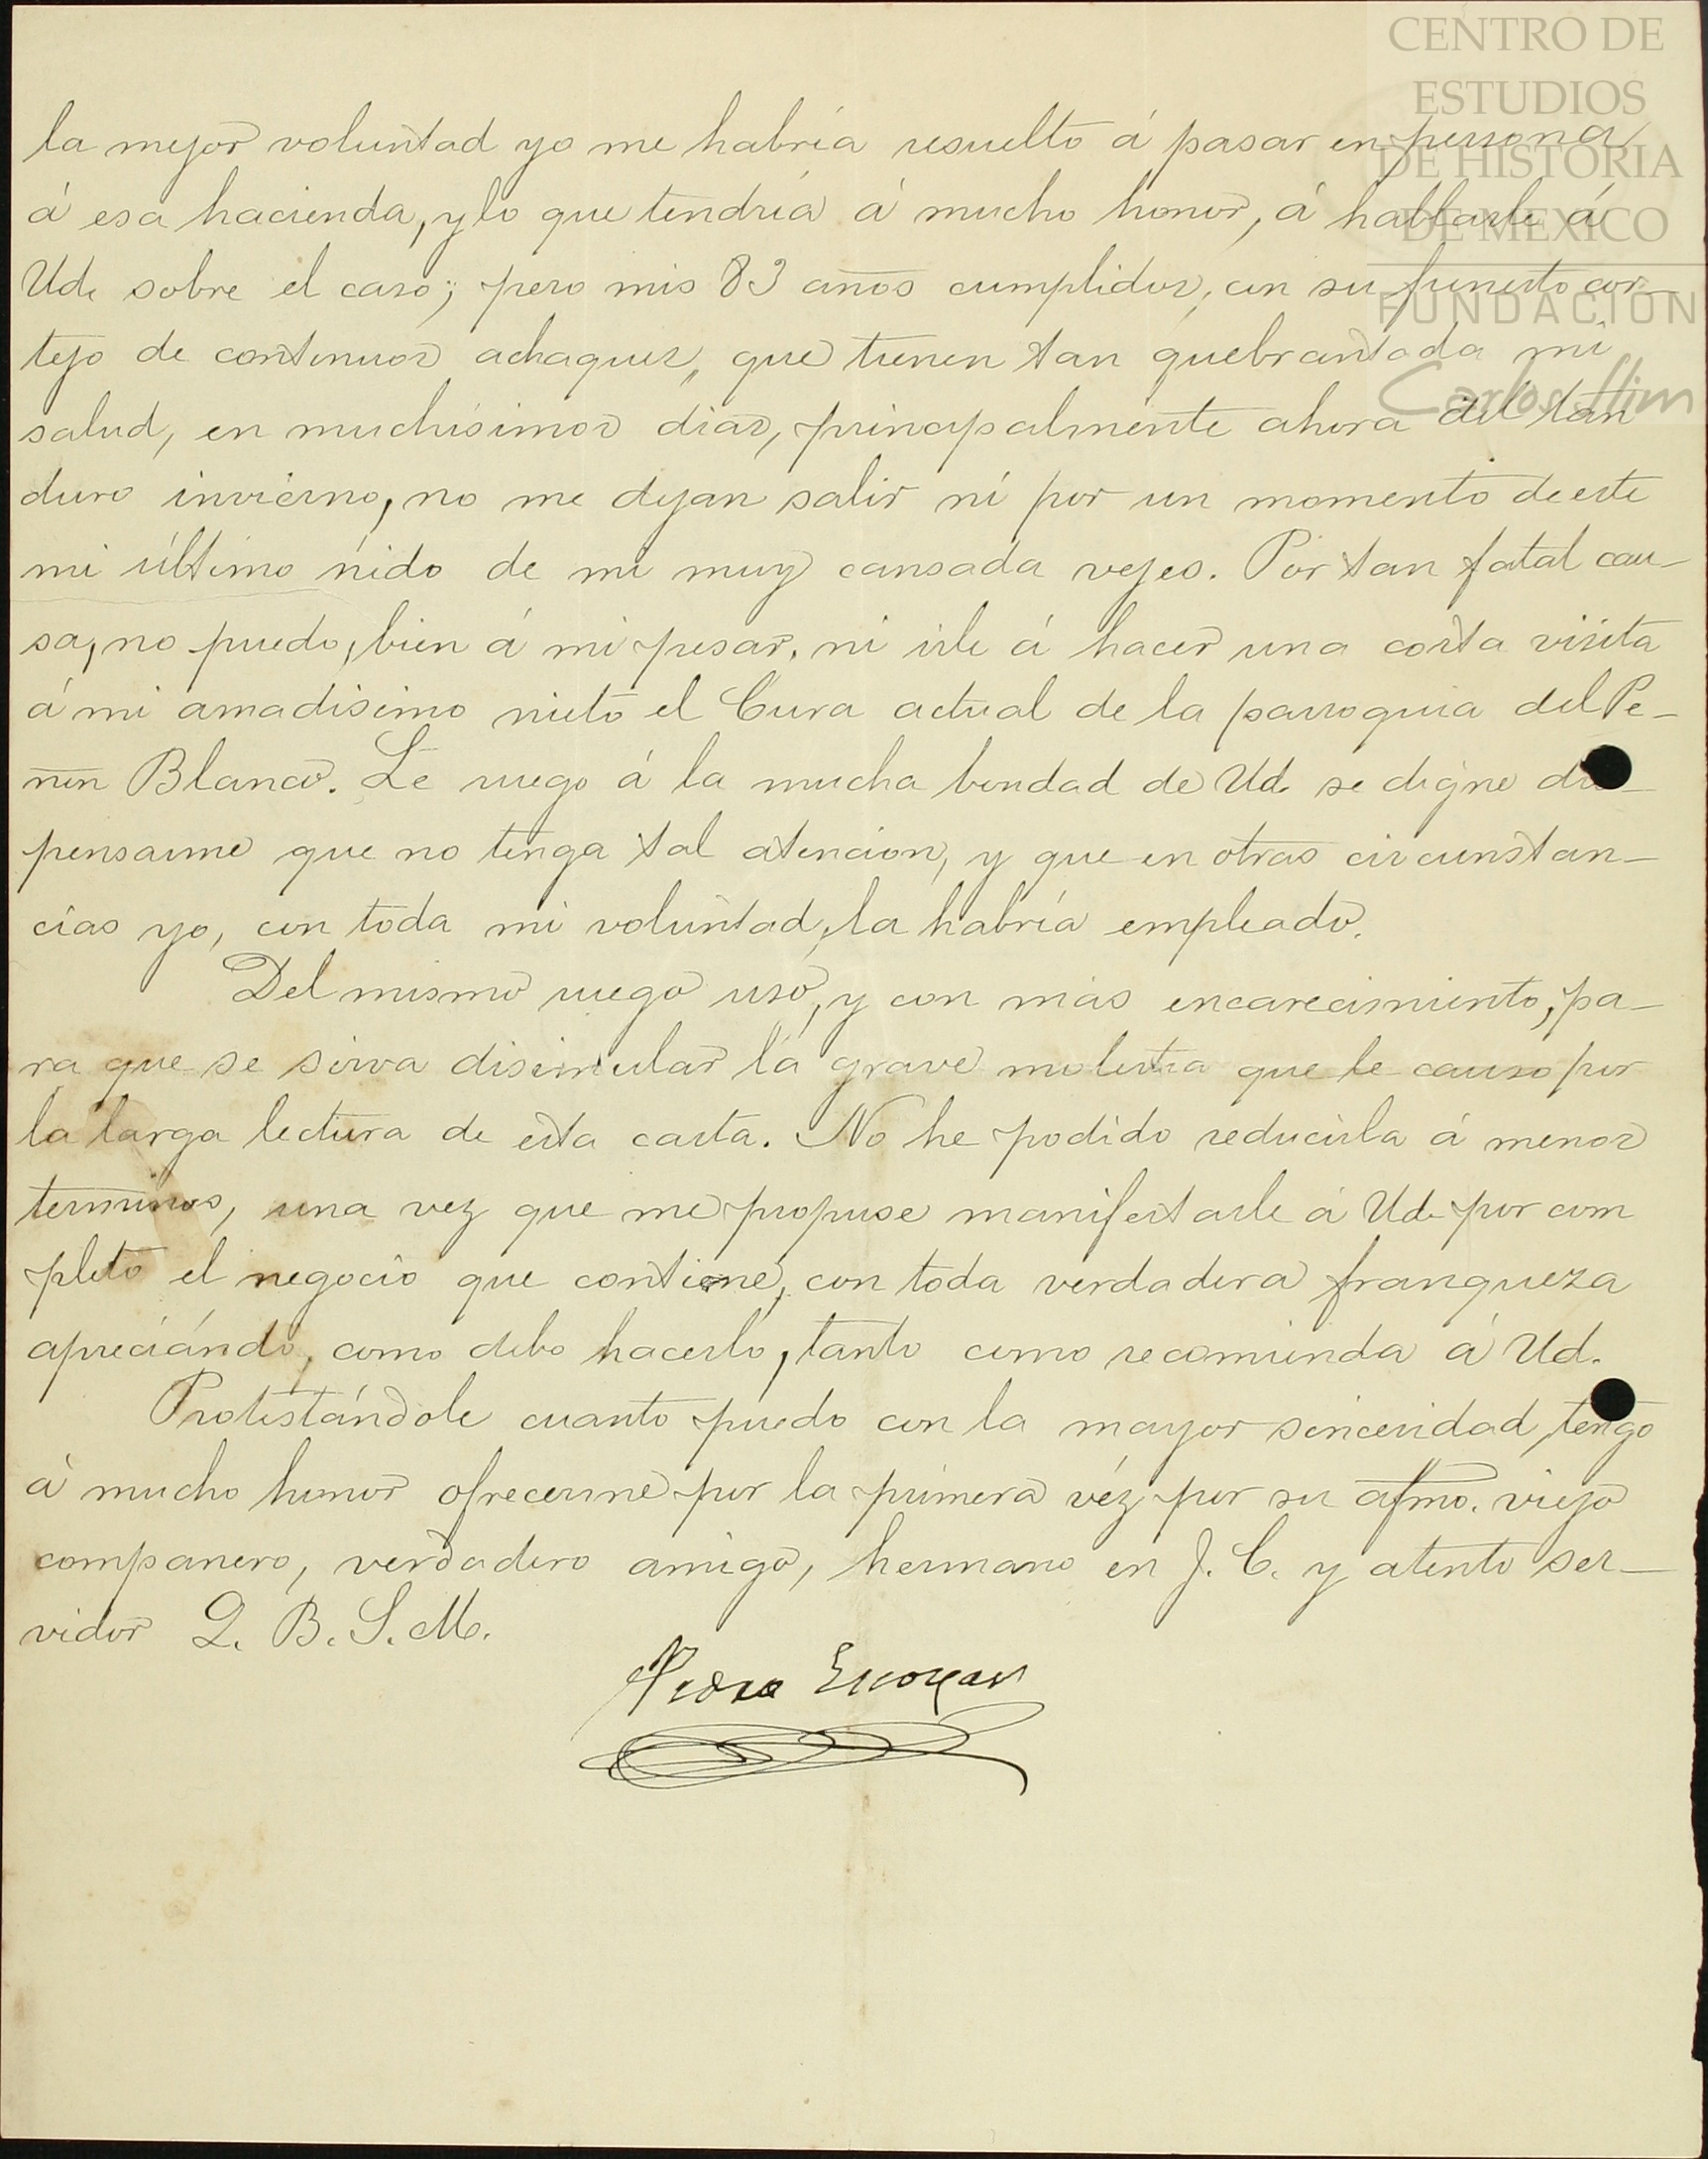 CENTRO DE
ESTUDIOS
DE HISTORIA
DE MEXICO
FUNDACION
Carlos Slim
la mejor voluntad yo me habría resuelto á pasar en persona
á esa hacienda, y lo que tendría á mucho honor, á hablarle á
Ud. sobre el caso; pero mis 83 años cumplidos, con su funesto cor-
tejo de continuos achaques, que tienen tan quebrantada mi
salud, en muchísimos dias, principalmente ahora del tan
duro invierno, no me dejan salir ni por un momento de este
mi último nido de mi muy cansada vejes. Por tan fatal cau-
sa, no puedo, bien á mi pesar, ni irle á hacer una corta visita
á mi amadisimo nieto el Cura actual de la parroquia del Pe-
ñon Blanco. Le ruego á la mucha bondad de Ud. se digne dis-
pensarme que no tenga tal atencion, y que en otras circunstan-
cias yo, con toda mi voluntad, la habría empleado.
Del mismo ruego uso, y con más encarecimiento, pa-
ra que se sirva disimular la grave molestia que le causo por
la larga lectura de esta carta. No he podido reducirla á menos
terminos, una vez que me propuse manifestarle á Ud. por com
pleto el negocio que contiene, con toda verdadera franqueza
apreciándo, como debo hacerlo, tanto como recomienda á Ud.
Protestándole cuanto puedo con la mayor sinceridad, tengo
á mucho honor ofrecerme por la primera véz por su afmo. viejo
compañero, verdadero amigo, hermano en J. C. y atento ser-
vidor Q. B. S. M.
Pedro Escobar